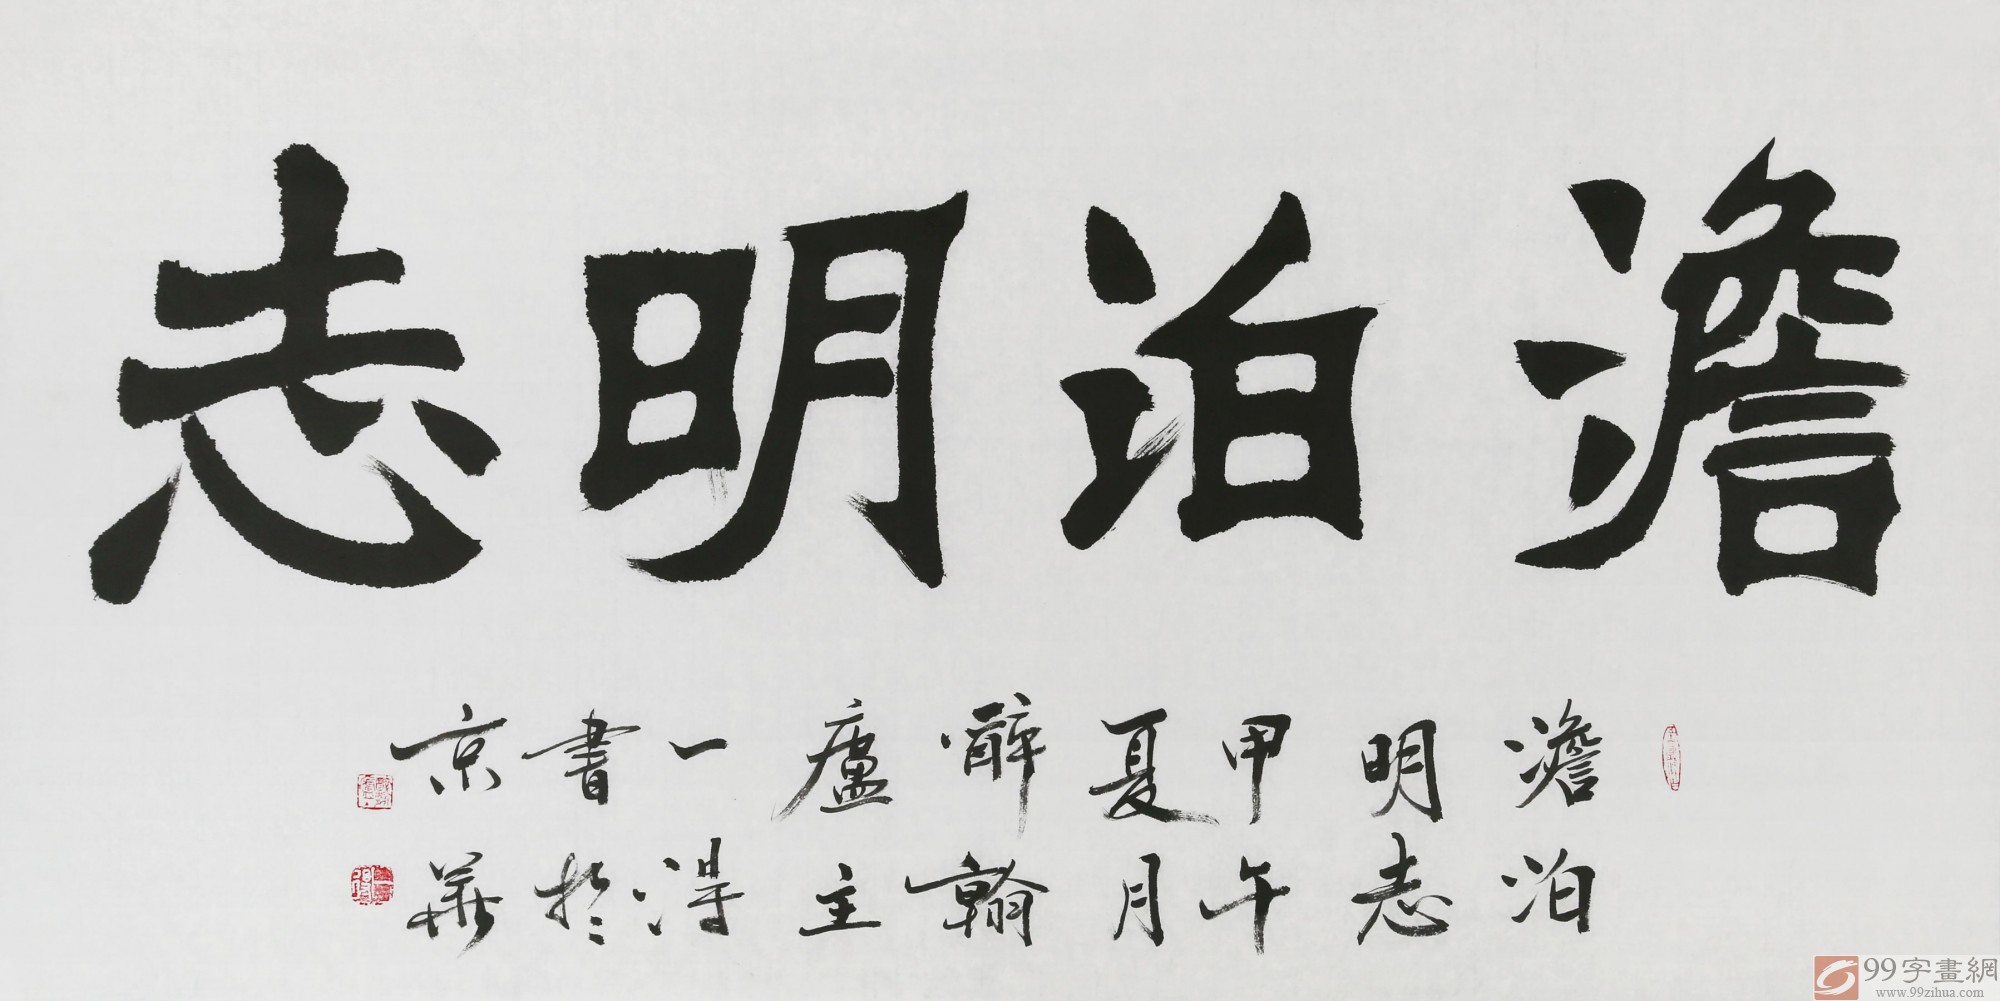 澹泊明志
澹泊
明志
甲午
夏月
醉翰
廬主
一得
書於
京華
99字畫網
www.99zihua.com